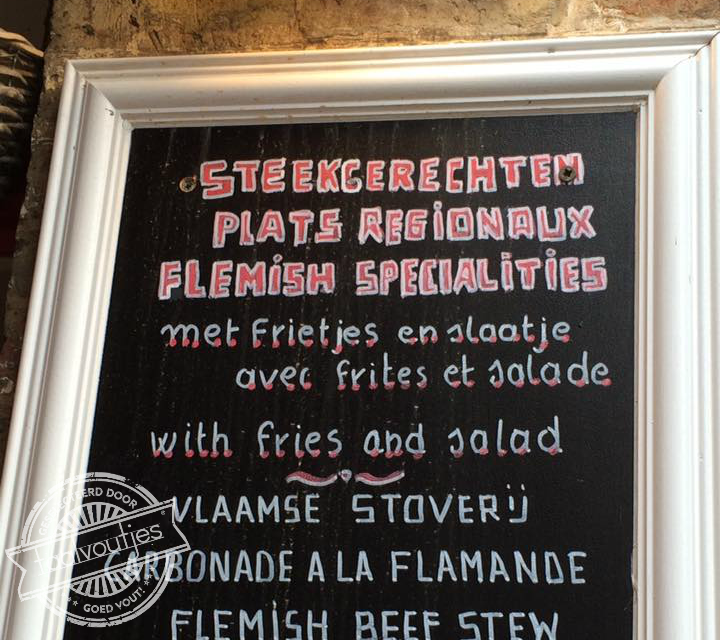 STEEKGERECHTEN
PLATS REGIONAUX
FLEMISH SPECIALITIES
met frietjes en slaatje
avec frites et salade
with fries and salad
VLAAMSE STOVERIJ
CARBONADE A LA FLAMANDE
FLEMISH BEEF STEW
DOOR
GOED VOUT!